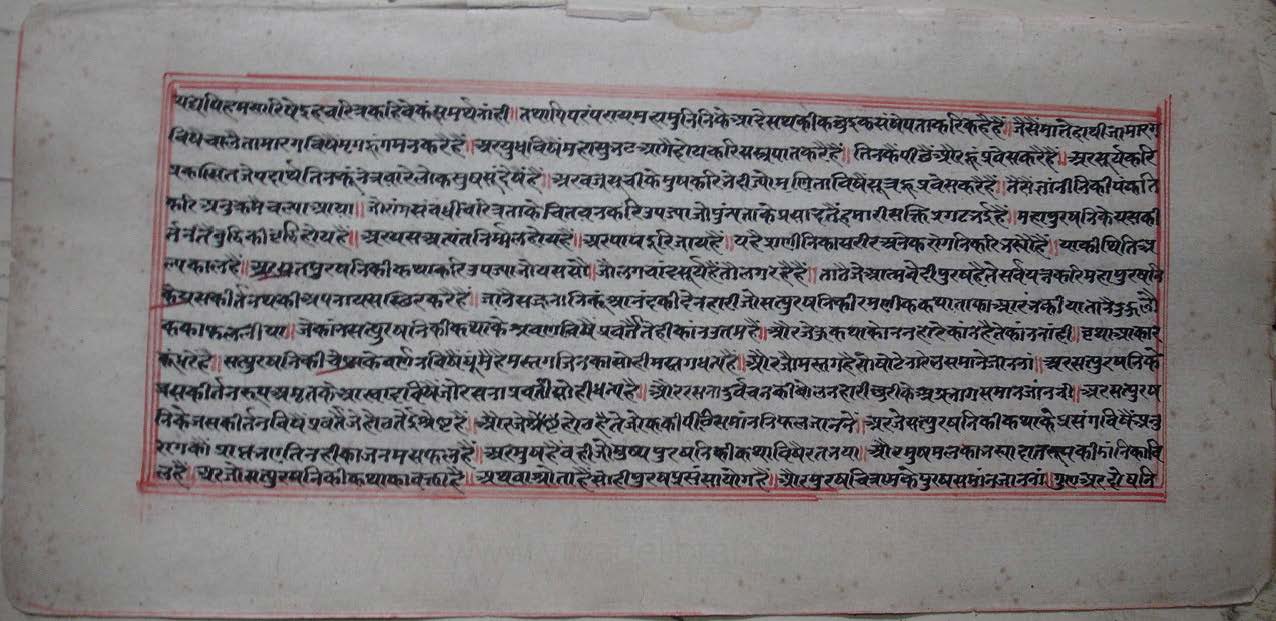 यद्यपि हमसारिषे इह चरित्र करिवेकूं समर्थ नांही॥ तथापि परंपराय महामुनिनिके आदेस थकी कछुइक संषेपताकरि कहै हैं॥ जैसैं माते हाथी जा मारग
विषै चालै ता मारग विषैं मृग हू गमन करै हैं॥ अर युध विषैं महासुभट आगे होय करि सस्त्रपात करै हैं॥ तिनकै पीछै और हूं प्रवेस करै हैं॥ अर सूर्य करि
प्रकासित जे पदार्थ तिनकूं नेत्रवारे लोक सुषसूं देषै हैं॥ अर वज्र सूचीके मुष करि भेदी जो मणि ता विषै सूत्र हू प्रवेस करै हैं॥ तैसैं ज्ञानीनिकी पंकति
करि अनुक्रम चल्या आया॥ जो रांम संबंधी चरित्र ताके चितवन करि उपज्या जो पुंन्य ताके प्रसाद तैं हमारी सक्ति प्रगट भई है॥ महापुरषनिके यस की
र्तन तैं बुद्धि की वृद्धि होय है॥ अर यस अत्यंत निर्मल होय है॥ अर पाप दूरि जाय है॥ यह प्राणीनिका सरीर अनेक रोगनि करि भर्या है॥ याकी थिति अ
ल्प काल है॥ अर सतपुरषनिकी कथा करि उपज्या जो यस सो जौ लग चांद सूर्य है तौ लग रहै है॥ तातैं जे आत्मवेदी पुरष है ते सर्व यत्न करि महापुरषनि
के जस कीर्तन थकी अपना यस स्थिर करै हैं॥ जानै सज्जनानिकूं आनंद की देनहारी जो सतपुरषनिकी रमणीक कथा ताका आरंभ कीया तानै दुहूं लो
कका फल लीया॥ जे कांन सतपुरषनिकी कथाके श्रवण विषै प्रवर्तै ते ही कांन उतम हैं॥ और जे कुकथा के सुननहारे कान है ते कांन नांही॥ वृथा आकार
कूं धरै है॥ सतपुरषनिकी चेष्टाके वर्णन विषै घूमैं है मस्तग जिनका सो ही मस्तग धन्य है॥ और जो मस्तग है सो थोथे नारेल समान जाननां॥ अर सतपुरषनिके
जस कीर्तन रूप अमृत के आस्वाद विषैं जो रसना प्रवर्ती सो ही धन्य है॥ और रसना दुर्वचन की बोलनहारी छुरी के अग्रभाग समान जाननी॥ अर सतपुरष
निके जस कीर्तन विषै प्रवर्तै जे होठ ते ई श्रेष्ट हैं॥ और जे होठ है ते जोक की पीठि समांन निफल जाननें॥ अर जे सतपुरषनिकी कथाके प्रसंग विषैं अनु
रागकौं प्राप्त भए तिनही का जनम सफल है॥ अर मुष है वही जो मुष्य पुरषनिकी कथा विषै रत भया॥ और मुष मल का भर्या दांत रूप कीडांनिका वि
ल है॥ अर जो सतपुरषनिकी कथाका वक्ता है॥ अथवा श्रोता है सो ही पुरष प्रसंसा योग है॥ और पुरष चित्राम के पुरष समांन जाननां॥ गुण अर दोषनि